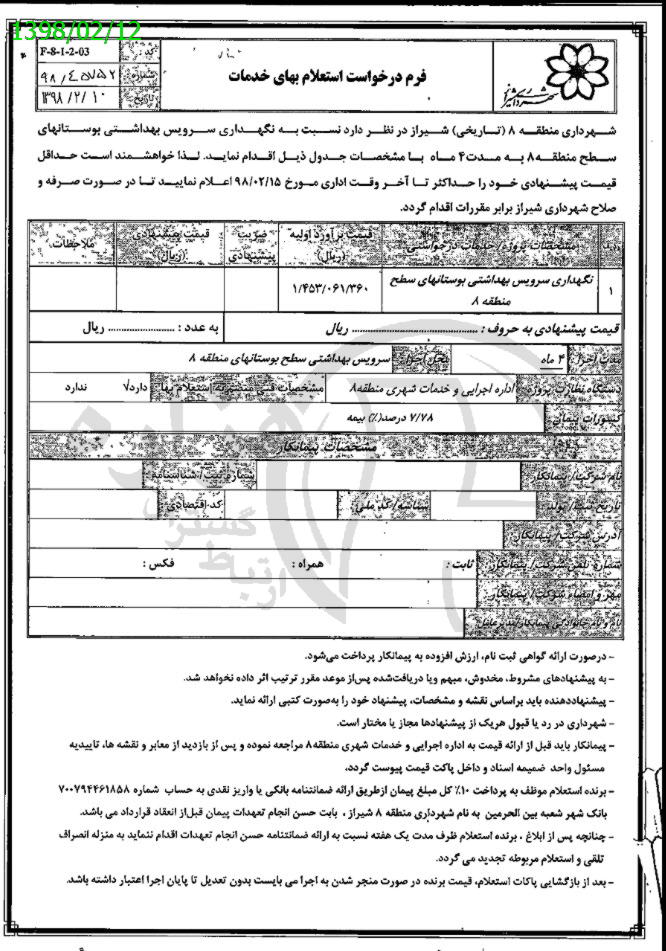 1398/02/12
کد: F-8-1-2-03
شماره: ۹۸/۴۵۷۵۲
تاریخ: ۱۳۹۸/۲/۱۰
فرم درخواست استعلام بهای خدمات
شهرداری شیراز
شهرداری منطقه ۸ (تاریخی) شیراز در نظر دارد نسبت به نگهداری سرویس بهداشتی بوستانهای
سطح منطقه ۸ به مدت ۴ ماه با مشخصات جدول ذیل اقدام نماید. لذا خواهشمند است حداقل
قیمت پیشنهادی خود را حداکثر تا آخر وقت اداری مورخ ۹۸/۰۲/۱۵ اعلام نمایید تا در صورت صرفه و
صلاح شهرداری شیراز برابر مقررات اقدام گردد.
ردیف مشخصات پروژه/ خدمات درخواستی قیمت برآورد اولیه (ریال) ضریب پیشنهادی قیمت پیشنهادی (ریال) ملاحظات
۱ نگهداری سرویس بهداشتی بوستانهای سطح منطقه ۸ ۱/۴۵۳/۰۶۱/۳۶۰
قیمت پیشنهادی به حروف : ........................................ ریال به عدد : ...................... ریال
مدت اجرا: ۴ ماه محل اجرا: سرویس بهداشتی سطح بوستانهای منطقه ۸
دستگاه نظارت پروژه: اداره اجرایی و خدمات شهری منطقه۸ مشخصات فنی منضم به استعلام بها: دارد√ ندارد
کسورات پیمان: ۷/۷۸ درصد(٪) بیمه
مشخصات پیمانکار
نام شرکت/ پیمانکار: شماره ثبت/ شناسنامه:
تاریخ ثبت/ تولد: شناسه/ کد ملی: کد اقتصادی:
آدرس شرکت/ پیمانکار:
شماره تلفن شرکت/ پیمانکار: ثابت : همراه : فکس :
مهر و امضاء شرکت/ پیمانکار:
نام و نام خانوادگی پیمانکار/مدیرعامل:
- درصورت ارائه گواهی ثبت نام، ارزش افزوده به پیمانکار پرداخت می‌شود.
- به پیشنهادهای مشروط، مخدوش، مبهم ویا دریافت‌شده پس‌از موعد مقرر ترتیب اثر داده نخواهد شد.
- پیشنهاددهنده باید براساس نقشه و مشخصات، پیشنهاد خود را به‌صورت کتبی ارائه نماید.
- شهرداری در رد یا قبول هریک از پیشنهادها مجاز یا مختار است.
- پیمانکار باید قبل از ارائه قیمت به اداره اجرایی و خدمات شهری منطقه۸ مراجعه نموده و پس از بازدید از معابر و نقشه ها، تاییدیه
مسئول واحد ضمیمه اسناد و داخل پاکت قیمت پیوست گردد.
- برنده استعلام موظف به پرداخت ۱۰٪ کل مبلغ پیمان ازطریق ارائه ضمانتنامه بانکی یا واریز نقدی به حساب شماره ۷۰۰۷۹۴۴۶۱۸۵۸
بانک شهر شعبه بین الحرمین به نام شهرداری منطقه ۸ شیراز ، بابت حسن انجام تعهدات پیمان قبل‌از انعقاد قرارداد می باشد.
- چنانچه پس از ابلاغ ، برنده استعلام ظرف مدت یک هفته نسبت به ارائه ضمانتنامه حسن انجام تعهدات اقدام ننماید به منزله انصراف
تلقی و استعلام مربوطه تجدید می گردد.
- بعد از بازگشایی پاکات استعلام، قیمت برنده در صورت منجر شدن به اجرا می بایست بدون تعدیل تا پایان اجرا اعتبار داشته باشد.